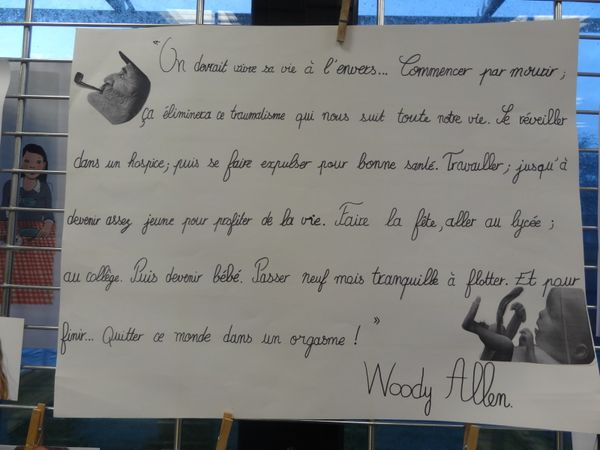 "On devrait vivre sa vie à l'envers... Commencer par mourir ;
ça éliminera ce traumatisme qui nous suit toute notre vie. Se réveiller
dans un hospice; puis se faire expulser pour bonne santé. Travailler; jusqu'à
devenir assez jeune pour profiter de la vie. Faire la fête, aller au lycée ;
au collège. Puis devenir bébé. Passer neuf mois tranquille à flotter. Et pour
finir... Quitter ce monde dans un orgasme ! "
Woody Allen.